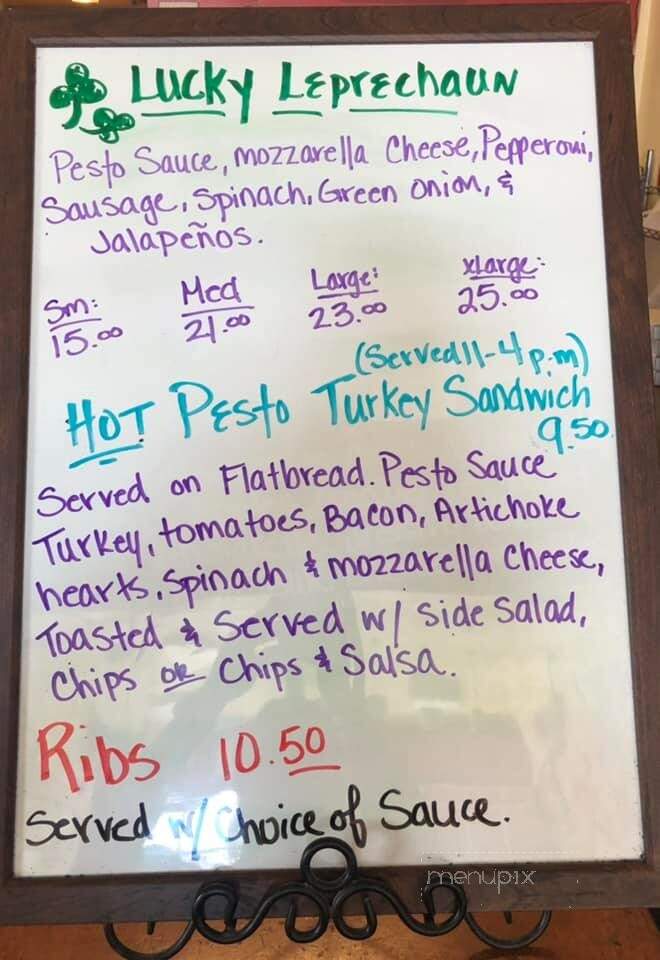 Lucky Leprechaun
Pesto Sauce, Mozzarella Cheese, Pepperoni,
Sausage, Spinach, Green Onion, &
Jalapeños.
Sm: Med Large: xLarge:
15.00 21.00 23.00 25.00
(Served 11-4 p.m)
Hot Pesto Turkey Sandwich
9.50
Served on Flatbread. Pesto Sauce
Turkey, tomatoes, Bacon, Artichoke
hearts, Spinach & mozzarella Cheese,
Toasted & Served w/ Side Salad,
Chips or Chips & Salsa.
Ribs 10.50
Served w/ Choice of Sauce.
menupix